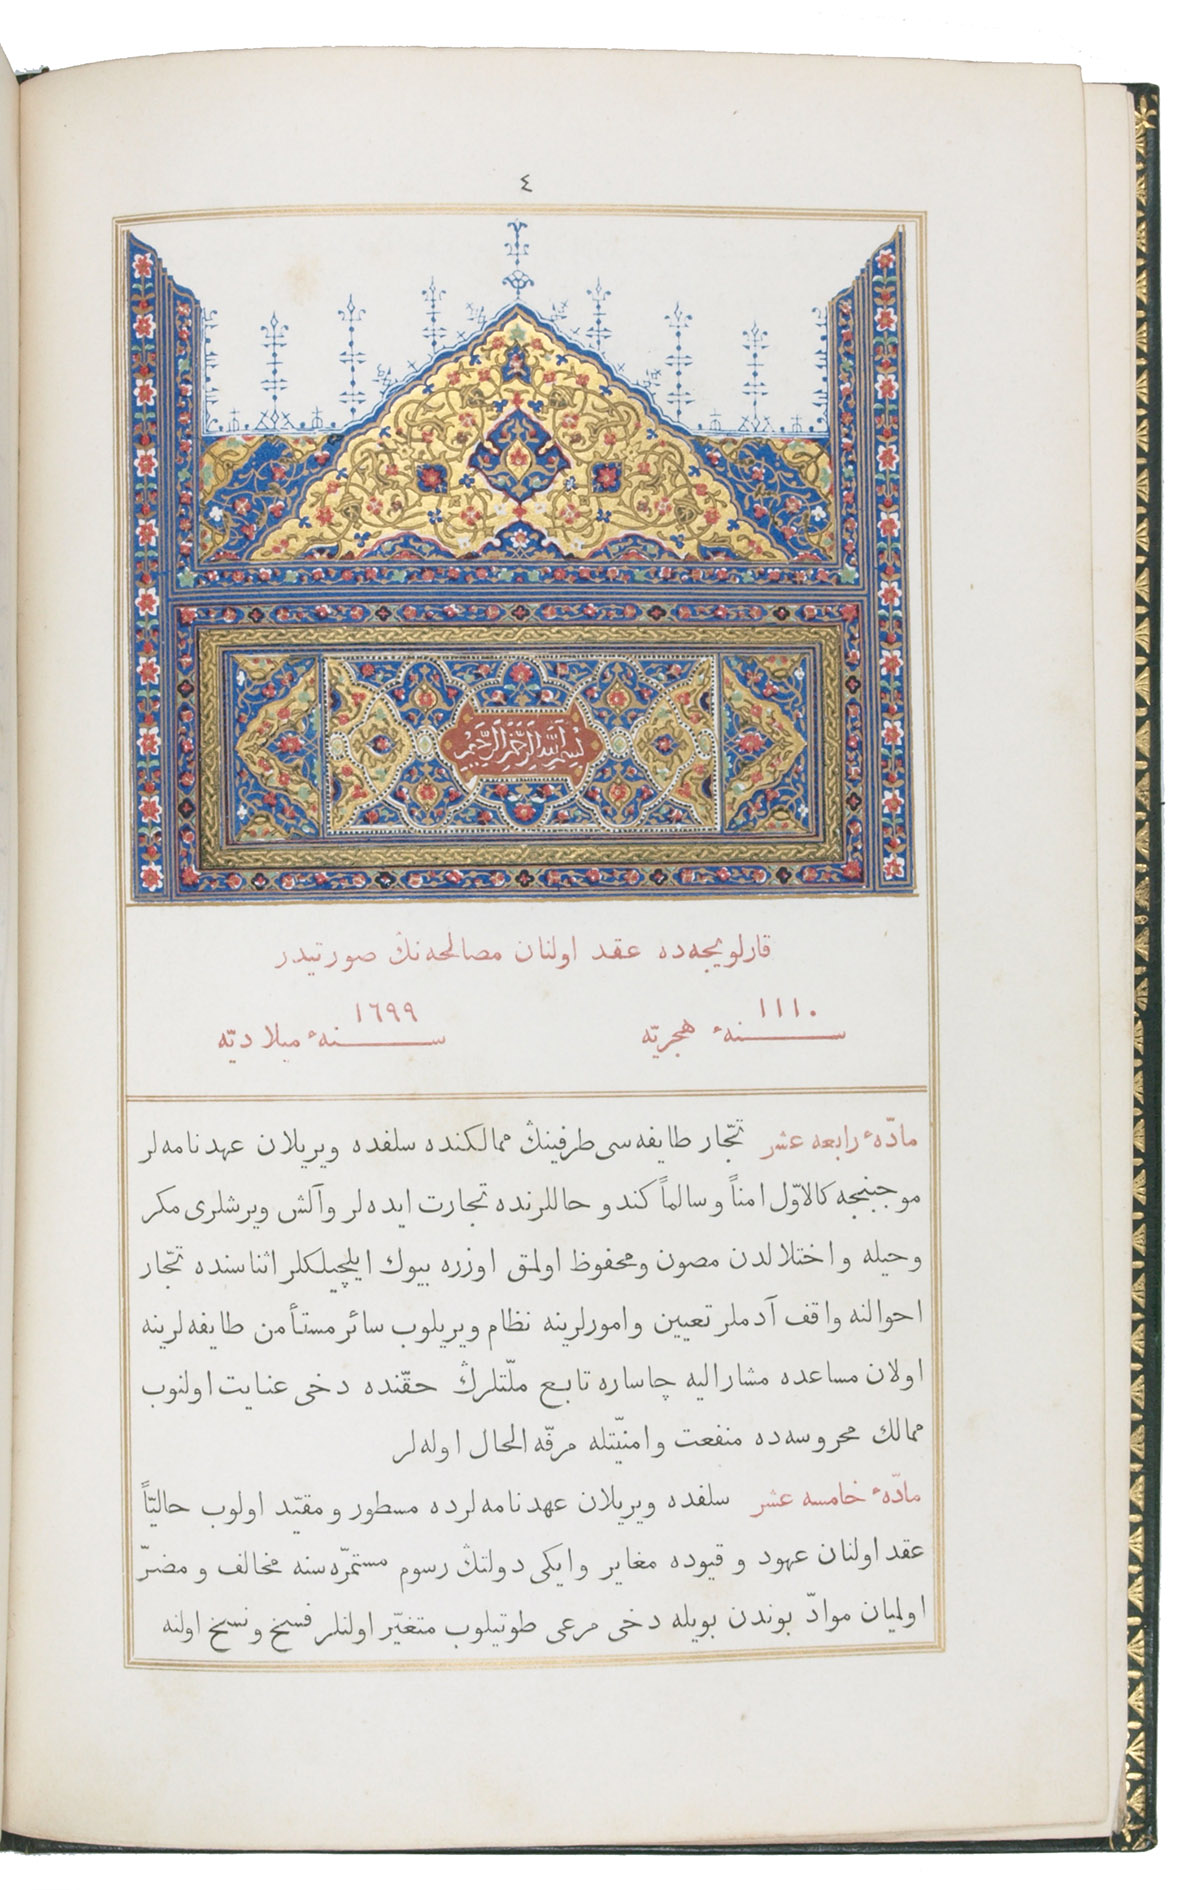 ٤
بسم الله الرحمن الرحيم
قارلويجه‌ده عقد اولنان مصالحه‌نڭ صورتيدر
١١١٠ ١٦٩٩
سنهٔ هجريّه سنهٔ ميلاديّه
مادّهٔ رابعه عشر تجّار طايفه‌سی طرفينڭ ممالكنده سلفده ويريلان عهدنامه‌لر
موجبنجه كالاوّل امناً و سالماً كندو حاللرنده تجارت ايده‌لر و آلش ويرشلری مكر
و حيله و اختلالدن مصون و محفوظ اولمق اوزره بيوك ايلچيلكلر اثناسنده تجّار
احوالنه واقف آدملر تعيين و امورلرينه نظام ويريلوب سائر مستأمن طايفه‌لرينه
اولان مساعده مشاراليه چاساره تابع ملّتلرڭ حقّنده دخی عنايت اولنوب
ممالك محروسه‌ده منفعت و امنيّتله مرفّه الحال اوله‌لر
مادّهٔ خامسه عشر سلفده ويريلان عهدنامه‌لرده مسطور و مقيّد اولوب حاليّاً
عقد اولنان عهود و قيوده مغاير و ايكی دولتڭ رسوم مستمرّه‌سنه مخالف و مضرّ
اولميان موادّ بوندن بويله دخی مرعی طوتيلوب متغيّر اولنلر فسخ و نسخ اولنه